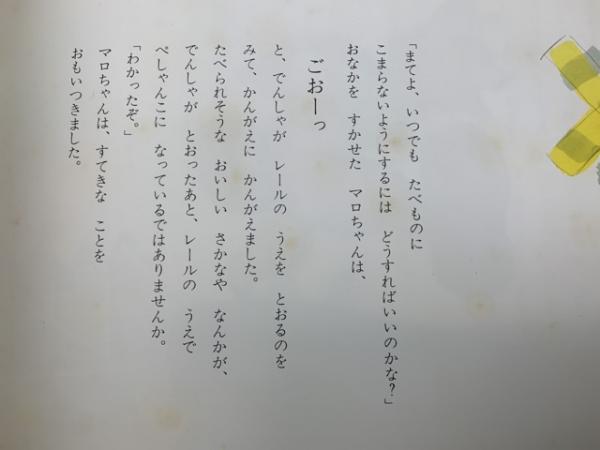 「まてよ、いつでも　たべものに
こまらないようにするには　どうすればいいのかな？」
おなかを　すかせた　マロちゃんは、
ごおーっ
と、でんしゃが　レールの　うえを　とおるのを
みて、かんがえに　かんがえました。
たべられそうな　おいしい　さかなや　なんかが、
でんしゃが　とおったあと、レールの　うえで
ぺしゃんこに　なっているではありませんか。
「わかったぞ。」
マロちゃんは、すてきな　ことを
おもいつきました。